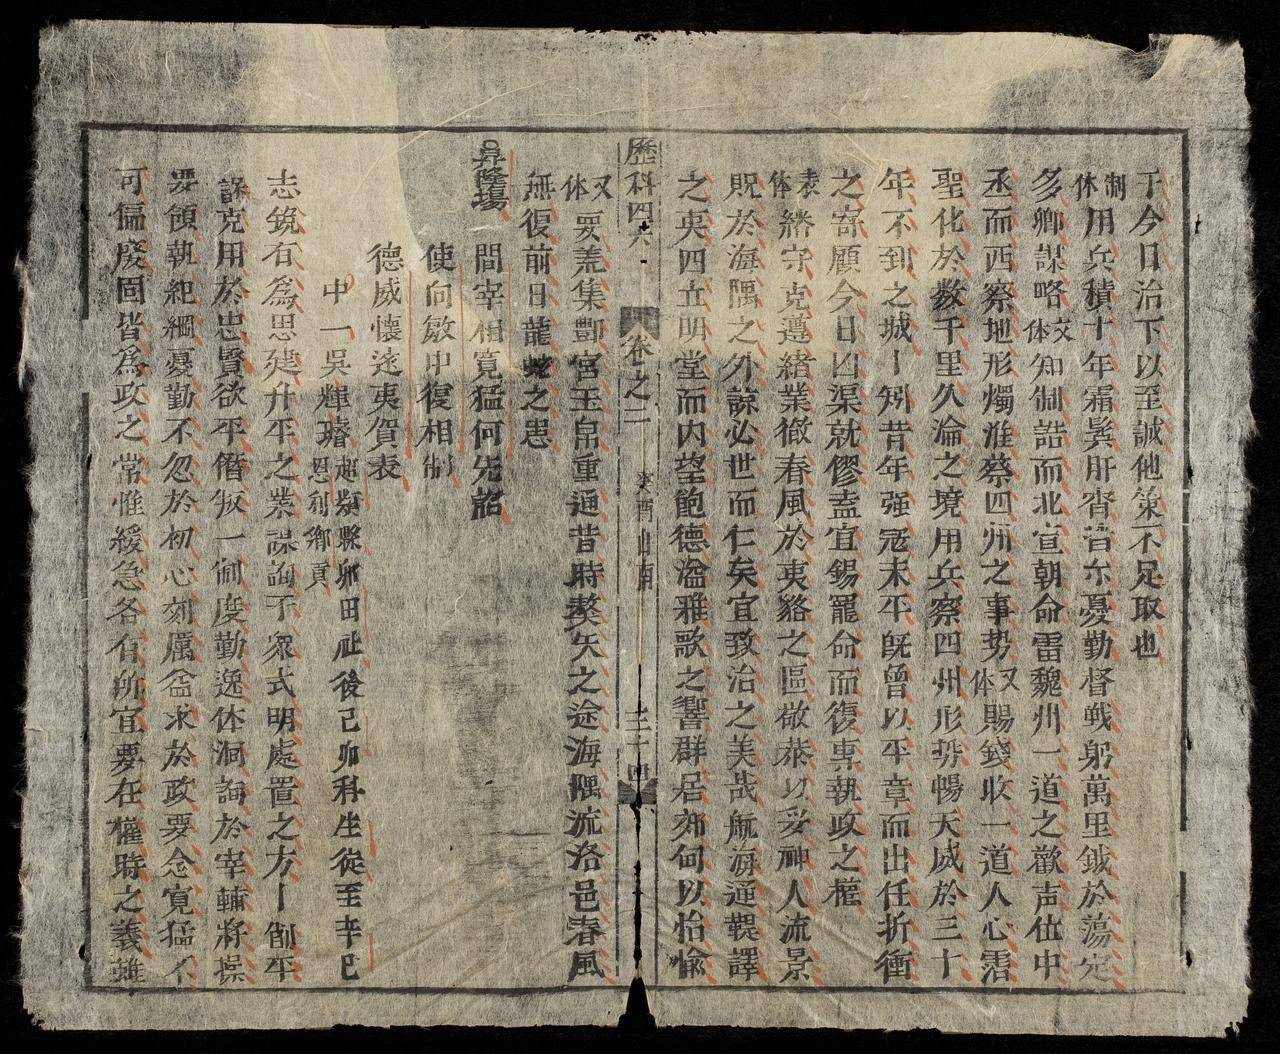 于今日治下以至誠他策不足取也
制体用兵積十年霜鬂肝宵旨尒憂勤督戦躬萬里鉞於蕩定
多卿謀略文体知制誥而北宣朝命雷魏州一道之歡声仕中
丞而西察地形燭淮蔡四州之事势又体賜錢收一道人心霑
聖化於数千里久淪之境用兵察四州形势暢天威於三十
年不到之城丨矧昔年强冦未平旣曾以平章而出任折衝
之寄願今日凶渠就僇盍宜錫寵命而復專執政之權
表体綹守克遵緒業徹春風於夷貉之區敬恭以妥神人流景
貺於海隅之外諒必世而仁矣宜致治之美哉航海逓鞮譯
之夷四立明堂而内望飽德溢雅歌之響群居郊甸以怡愉
又体要羗集酆宮玉帛重通昔時楘矢之途海隅流洛邑春風
無復前日龍蛇之恚
昇隆塲 間宰相寛猛何先詔
使向敏中復相制
德威懷逺夷賀表
中一吳輝𤩱超類縣卯田社後己卯科生徒至辛巳恩制鄉貢
志筑有為思建升平之業謀詢于衆式明處置之方丨制平
謀克用於忠賢欲平僭叛一制度勤逸体洞詢於宰輔将操
要領執紀綱憂勤不忽於初心刻厲益求於政要念寛猛不
可偏廢固皆為政之常惟緩急各有所宜要在權時之義雖
歷科四六 卷之二 三十四